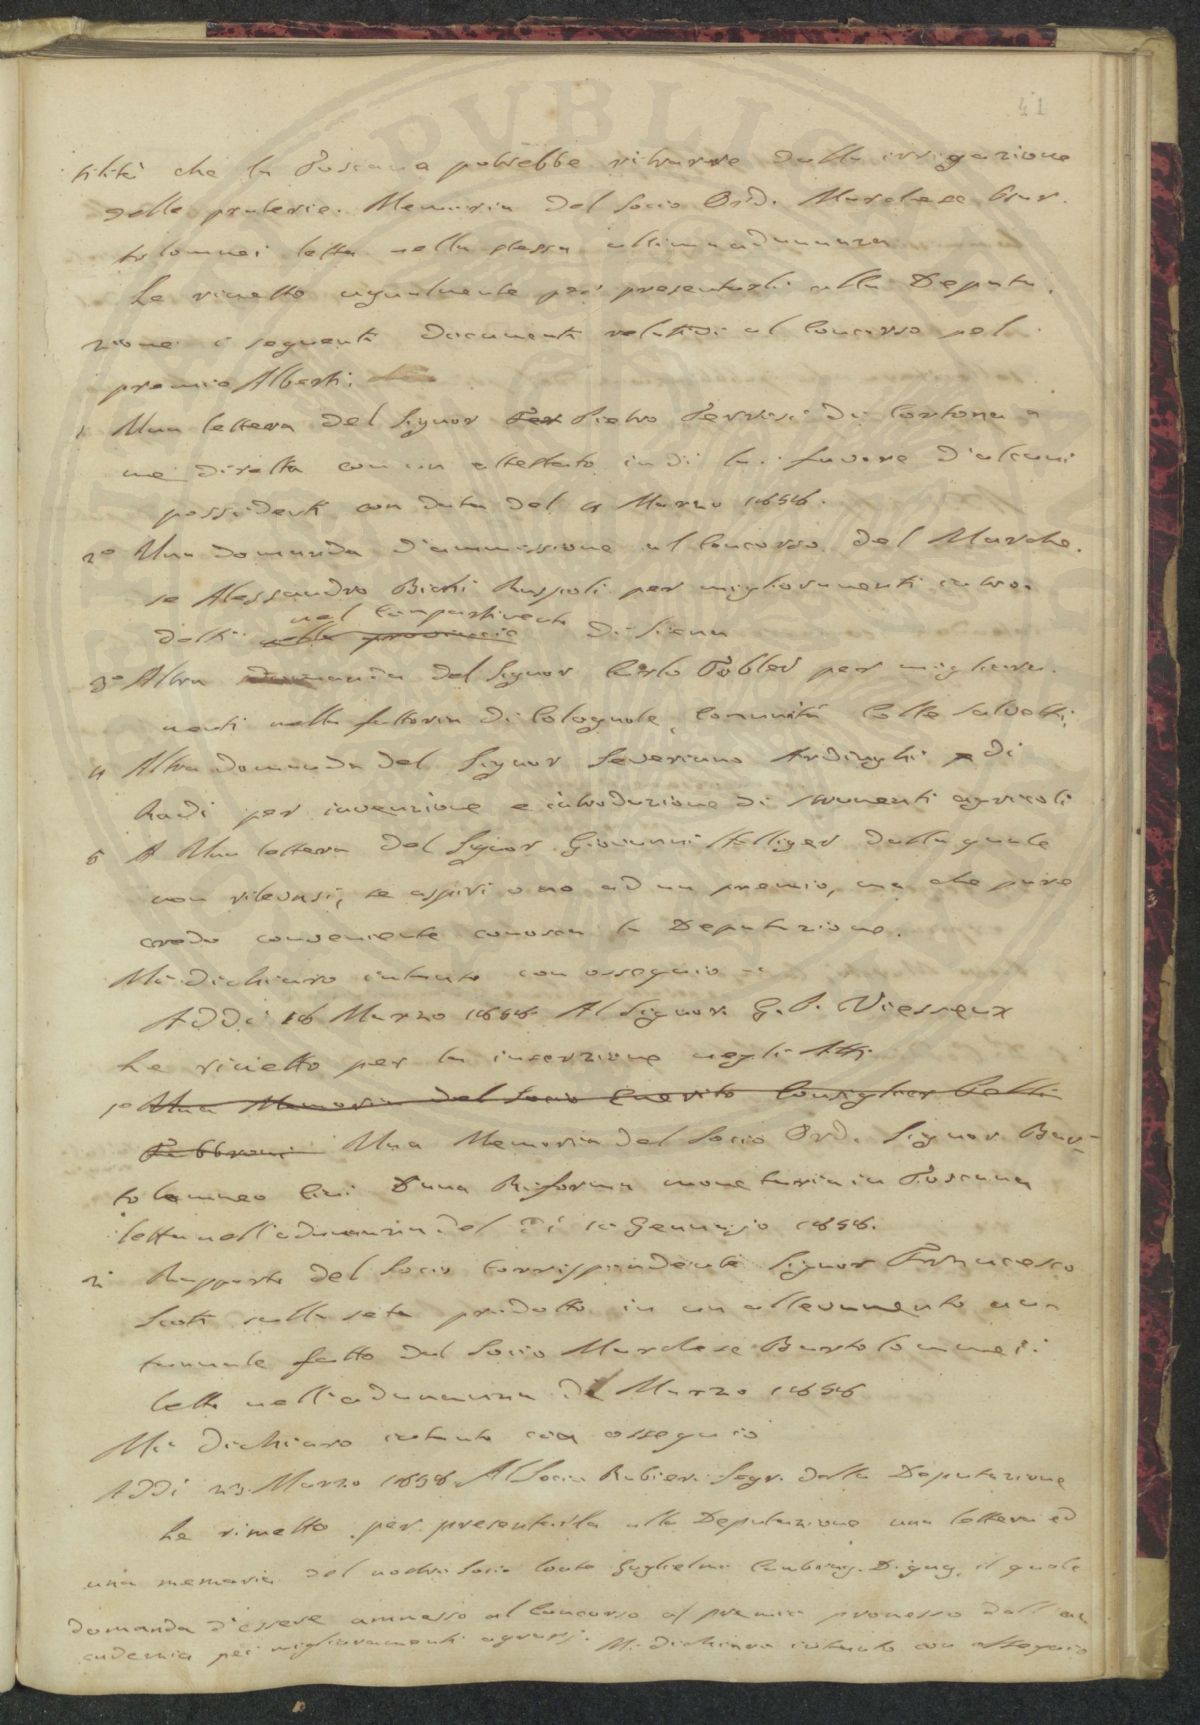 41
tilità che la Toscana potrebbe ritrarre dalla irrigazione
delle praterie. Memoria del Socio Ord. Marchese Bar-
tolommei letta nella stessa ultima adunanza
Le rimetto ugualmente per presentarli alla Deputa-
zione i seguenti documenti relativi al Concorso pel
premio Alberti:
1 Una lettera del Signor Pietro Ferrosi di Cortona a
me diretta con un attestato in di lui favore d'alcuni
possidenti con data del 4 Marzo 1858.
2° Una domanda d'ammissione al Concorso del Marche-
se Alessandro Bichi Ruspoli per miglioramenti intro-
dotti nel Compartimento di Siena
nella provincia
3° Altra domanda del Signor Carlo Tobler per migliora-
menti nella fattoria di Colognole, Comunità Colle Salvetti,
4 Altra domanda del Signor Severiano Ardinghi di
Radi per invenzione e introduzione di strumenti agricoli
5 A Una lettera del Signor Giovanni dalla quale
non rilevasi, se aspiri o no ad un premio, ma che pure
credo conveniente conosca la Deputazione.
Mi dichiaro intanto con ossequio
Addì 16 Marzo 1858 Al Signor G. P. Viesseux
Le rimetto per la inserzione negli Atti
1° Una Memoria del Socio Emerito Consiglier Celli
Fabbroni Una Memoria del Socio Ord. Signor Bar-
tolommeo Cini D'una Riforma monetaria in Toscana
letta nell'adunanza del dì 10 Gennajo 1858.
2° Rapporto del Socio Corrispondente Signor Francesco
Scoti sulla seta prodotta in un allevamento au-
tunnale fatto dal Socio Marchese Bartolommei.
letto nell'adunanza di Marzo 1858
Mi dichiaro intanto con ossequio
Addì 23 Marzo 1858. Al Socio Rubieri Segr. della Deputazione
Le rimetto per presentarla alla Deputazione una lettera ed
una memoria del nostro Socio Conte Guglielmo Cambray-Digny, il quale
domanda d'essere ammesso al Concorso al premio promesso dall'Ac-
cademia pei miglioramenti agrarj. Mi dichiaro intanto con ossequio